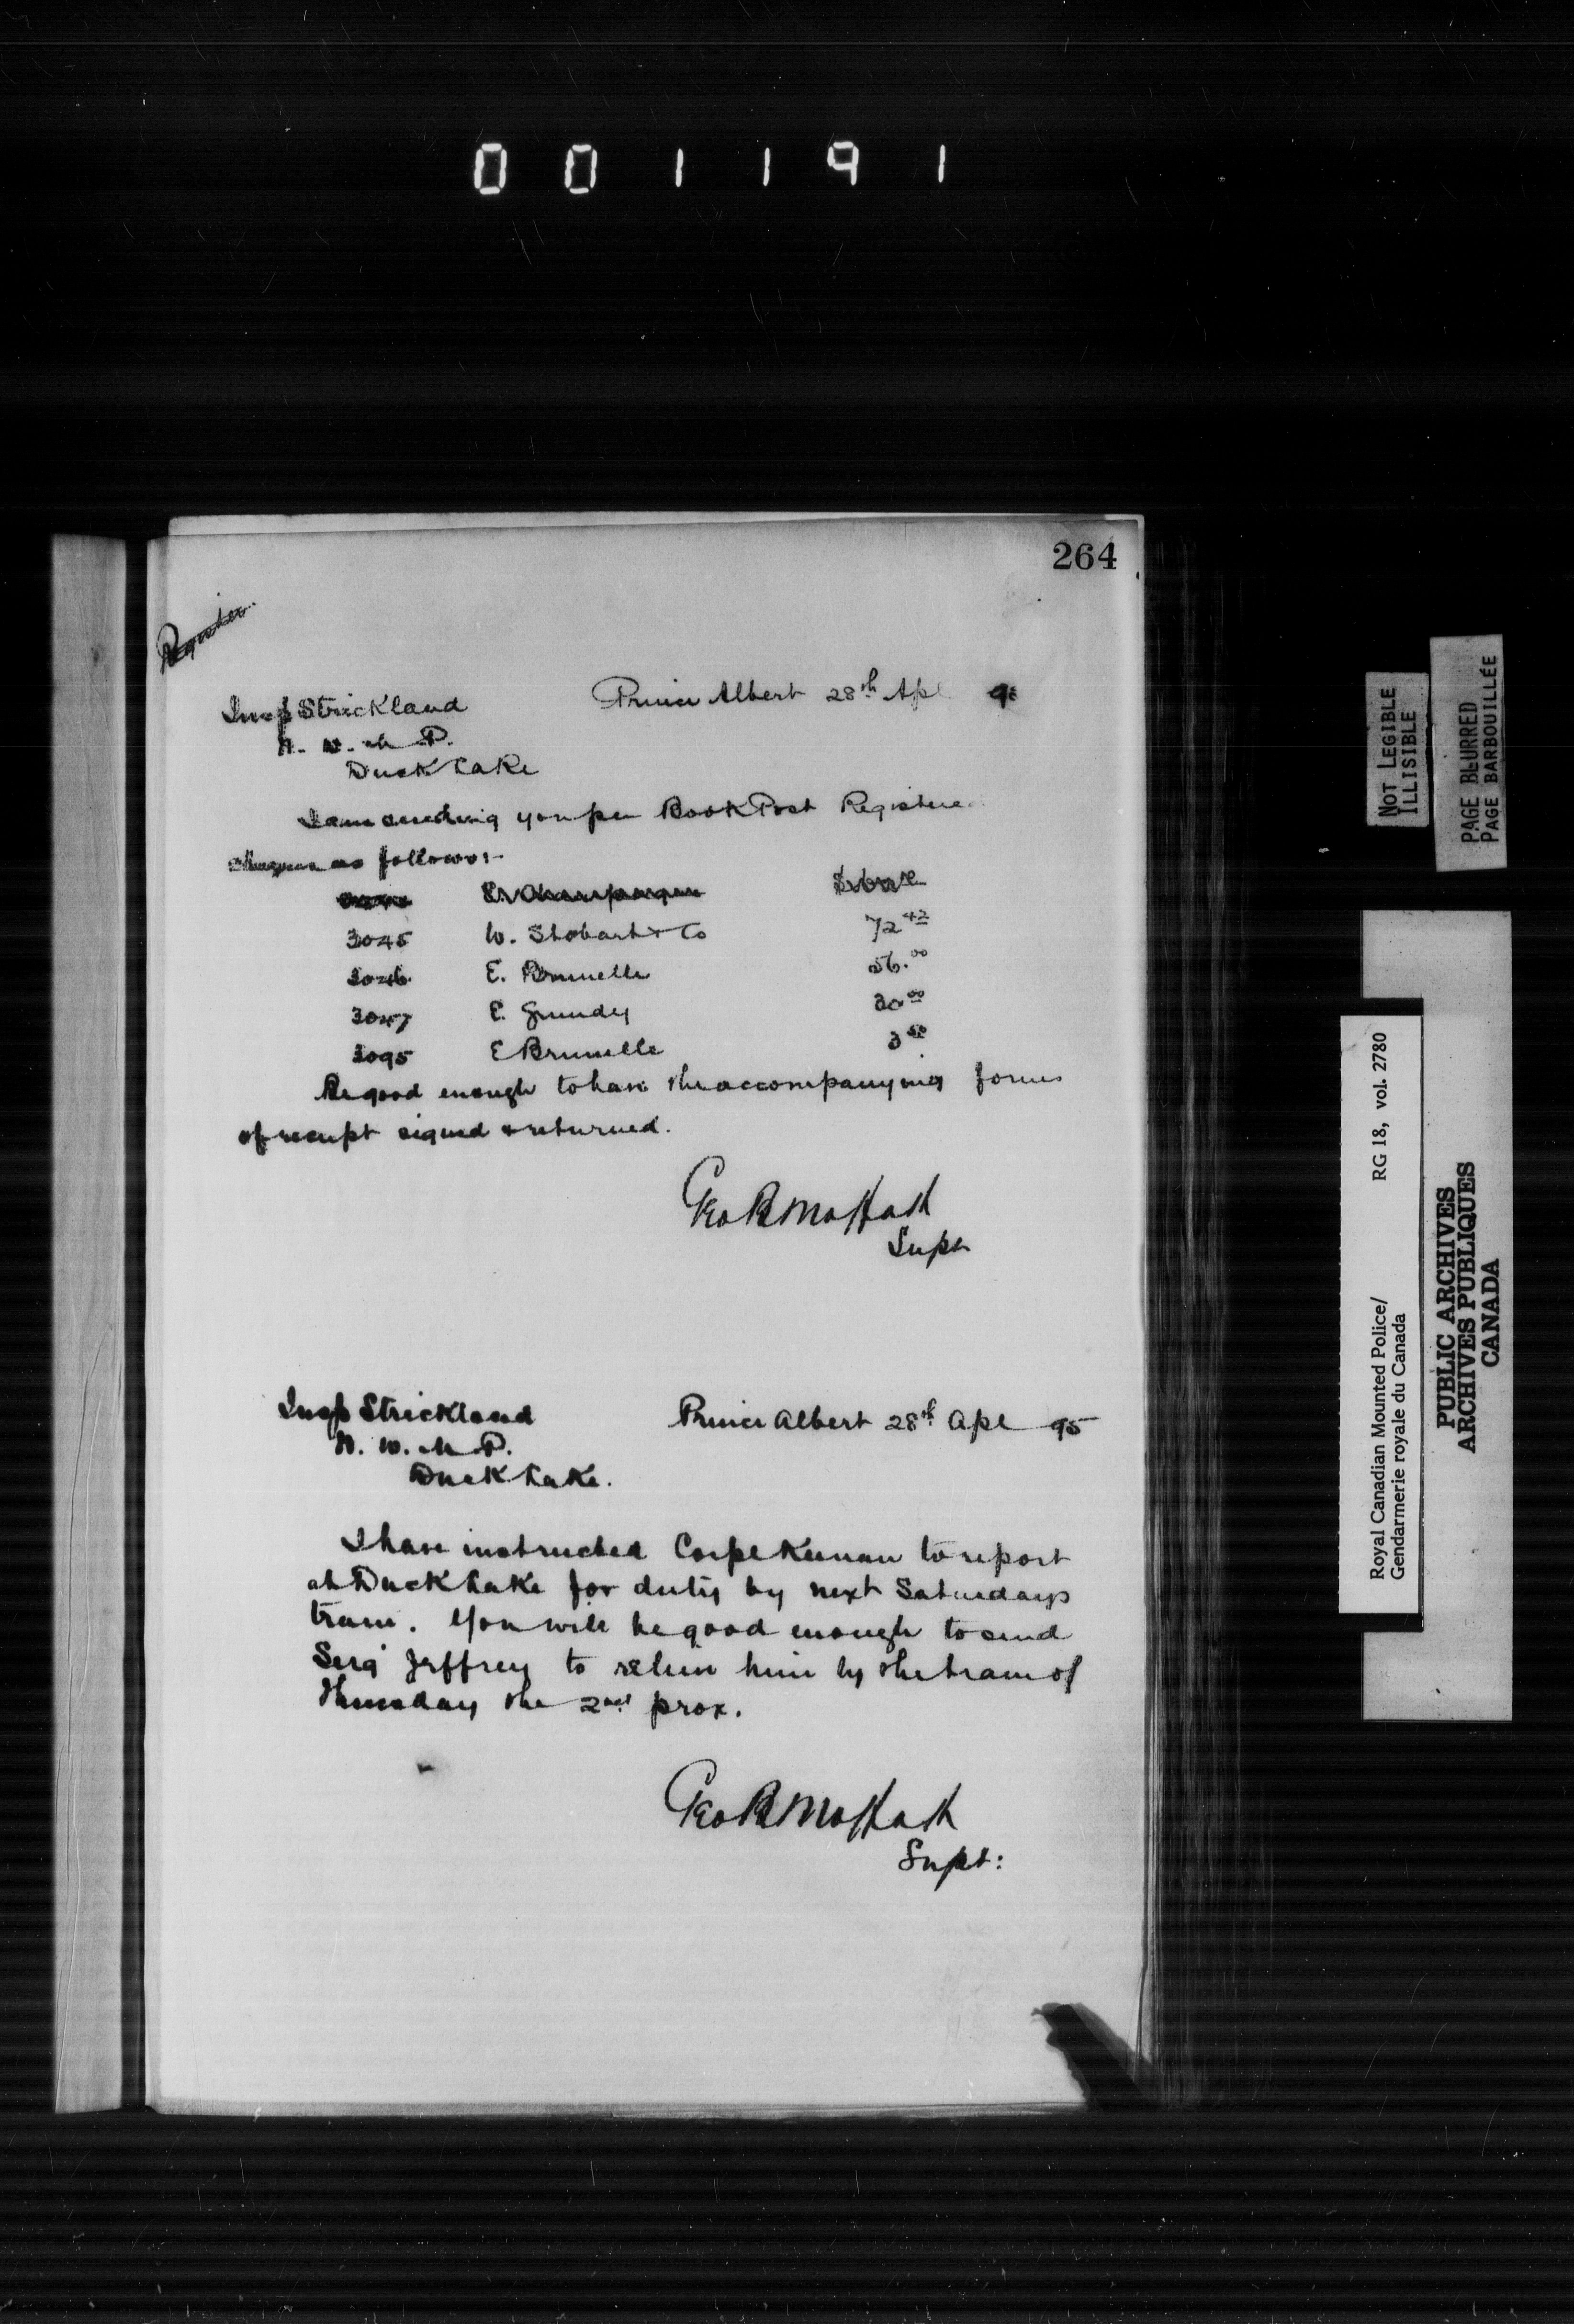 001191
264
Register
Insp Strickland
Prince Albert 28th Apl 9
N. W. M. P.
Duck Lake
I am sending you per Book Post Registered
cheques as follows:-
3045 W. Stobart & Co 72 42
3046 E. Brunelle 56.00
3047 E. Grundy 00
3095 E Brunelle
Be good enough to have the accompanying forms
of receipt signed & returned.
Geo B Moffatt
Supt
Insp Strickland
Prince Albert 28th Apl 95
N. W. M. P.
Duck Lake.
I have instructed Corpl Keenan to report
at Duck Lake for duty by next Saturdays
train. You will be good enough to send
Serg Jeffrey to relieve him by the train of
Thursday the 2nd prox.
Geo B Moffatt
Supt:
NOT LEGIBLE
ILLISIBLE
PAGE BLURRED
PAGE BARBOUILLÉE
Royal Canadian Mounted Police/ RG 18, vol. 2780
Gendarmerie royale du Canada
PUBLIC ARCHIVES
ARCHIVES PUBLIQUES
CANADA